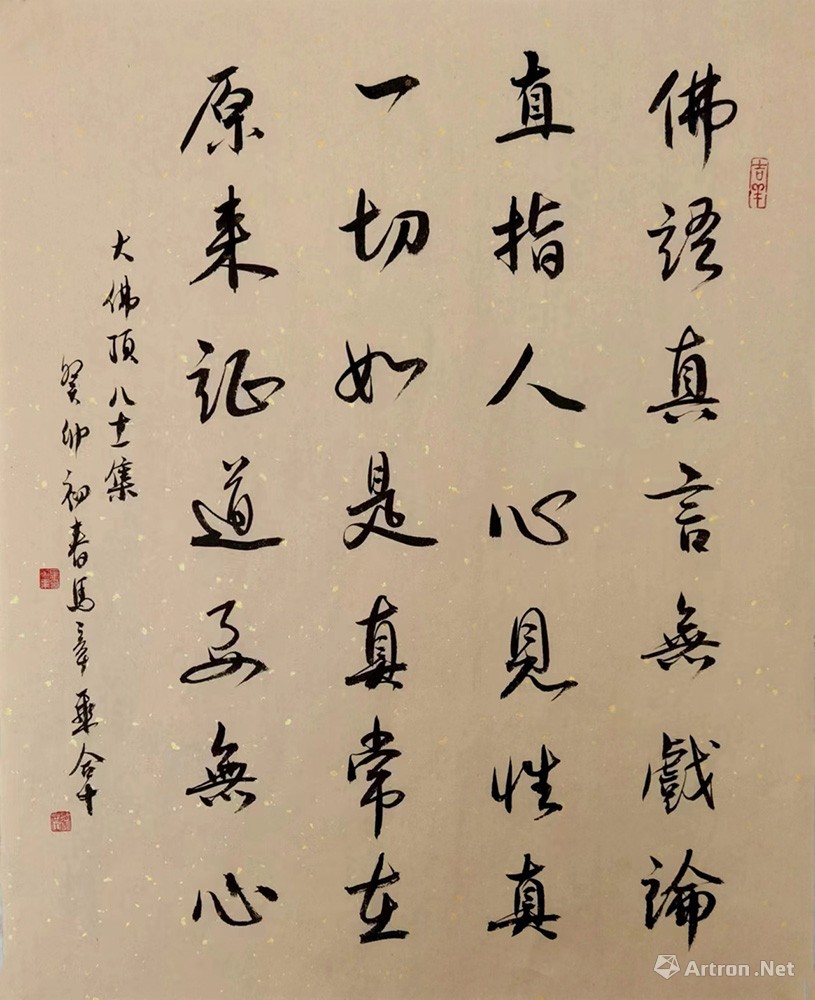 吉羊
佛語真言無戲論
直指人心見性真
一切如是真常在
原来証道要無心
大佛頂八十一集
癸卯初春馬章乘合十
Artron.Net